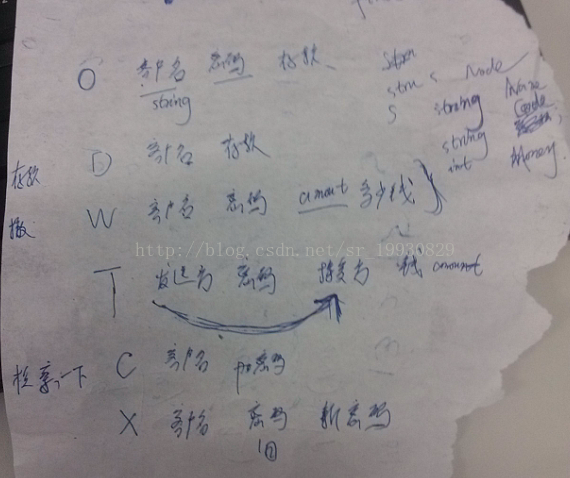 O 客户名 密码 存款
string
struct Node
string Name
string Code
int Money
存款 D 客户名 存款
W 客户名 密码 amount 多少钱
http://blog.csdn.net/sr_19930829
T 发送者 密码 接受者 钱 amount
检察一下 C 客户名 密码
X 客户名 密码 新密码